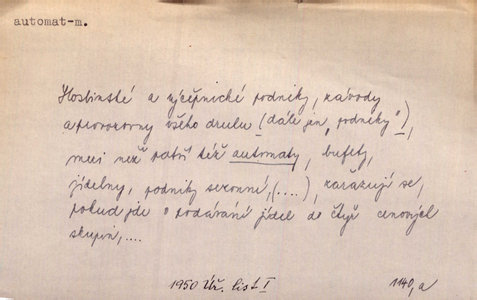 automat-m.
Hostinské a výčepnické podniky, závody
a provozovny všeho druhu (dále jen "podniky"),
mezi než patří též automaty, bufety,
jídelny, podniky sezonní, (....), zařazují se,
pokud jde o podávání jídel do čtyř cenových
skupin,....
1950 Úř. list I 1140,a